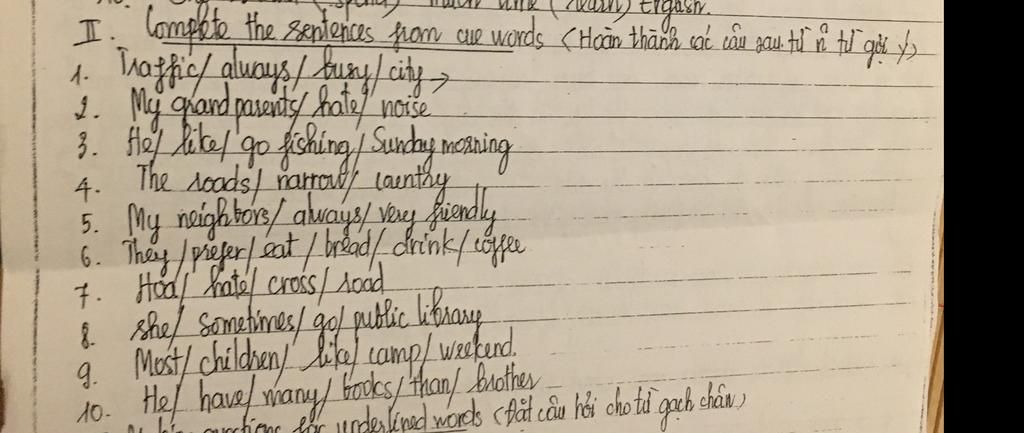 II. Complete the sentences from cue words (Hoàn thành các câu sau từ n̄ từ gợi ý)
1. Traffic/ always/ busy/ city →
2. My grandparents/ hate/ noise
3. He/ like/ go fishing/ Sunday morning
4. The roads/ narrow/ country
5. My neighbors/ always/ very friendly
6. They/prefer/eat/bread/drink/coffee
7. Hoa/ hate/ cross/ road
8. she/ sometimes/ go/ public library
9. Most/ children/ like/ camp/ weekend.
10. He/ have/ many/ books/ than/ brother
questions for underlined words (Đặt câu hỏi cho từ gạch chân)